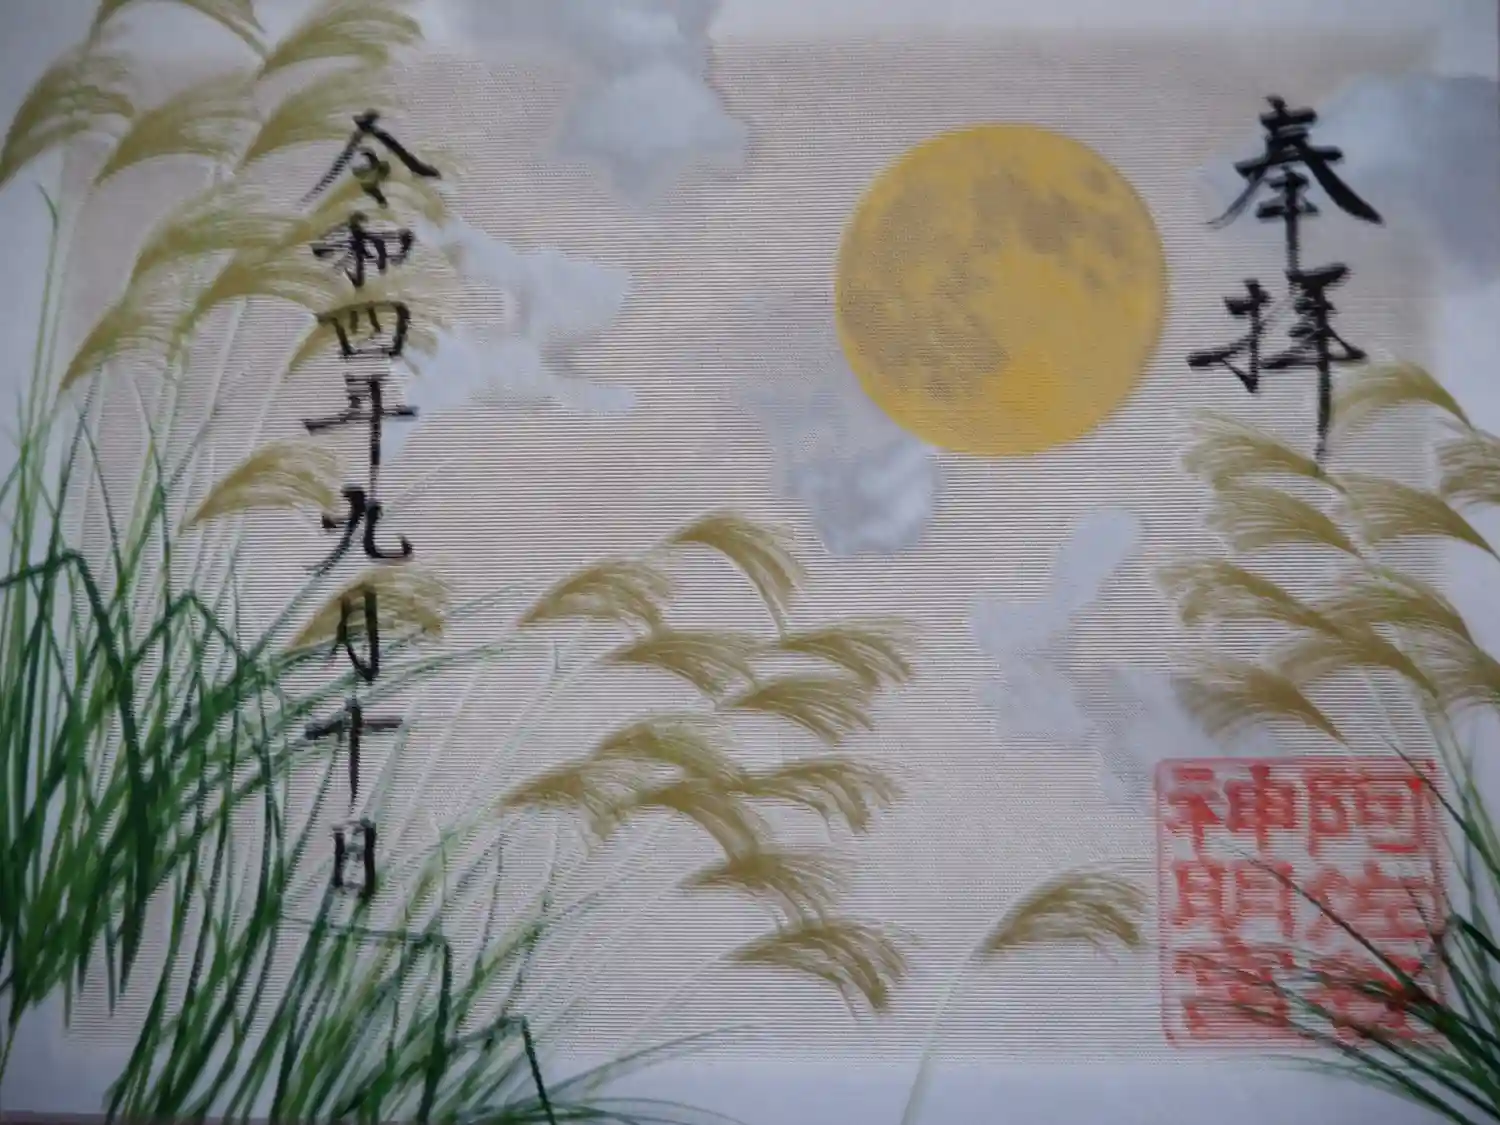 奉拝
阿佐谷
神明宮
令和四年九月十日